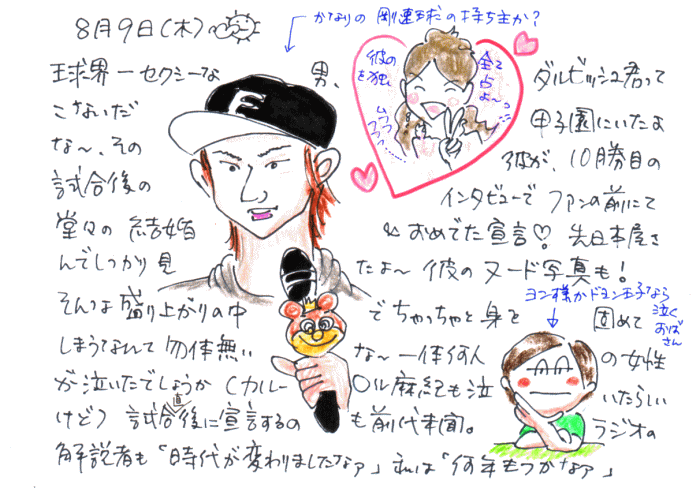 8月9日(木)
かなりの剛速球の持ち主か?
彼の全てを独占よ~っ
ムフフフフ
球界一セクシーな男、ダルビッシュ君って
こないだ甲子園にいたよ
な~、その彼が、10勝目の
試合後のインタビューでファンの前にて
堂々の結婚&おめでた宣言♡! 先日本屋さ
んでしっかり見たよ~彼のヌード写真も!
ヨン様かドヨン王子なら泣くおばさん
そんな盛り上がりの中でちゃっちゃと身を固めて
しまうなんて勿体無いな~一体何人の女性
が泣いたでしょうか(カルー○ル麻紀も泣いたらしい
けど)試合直後に宣言するのも前代未聞。ラジオの
解説者も「時代が変わりましたなァ」私は「何年もつかなァ」
E